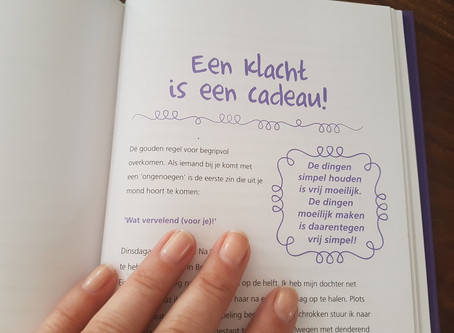 Een klacht
is een cadeau!
De gouden regel voor begripvol
overkomen. Als iemand bij je komt met
een 'ongenoegen' is de eerste zin die uit je
mond hoort te komen:
'Wat vervelend (voor je)!'
De dingen
simpel houden
is vrij moeilijk.
De dingen
moeilijk maken
is daarentegen
vrij simpel!
Dinsdaga Na
te he in B
op de helft. Ik heb mijn dochter net
haar na e ag op te halen. Plots
eling be schrokken stuur ik naar
estant t wegen met denderend